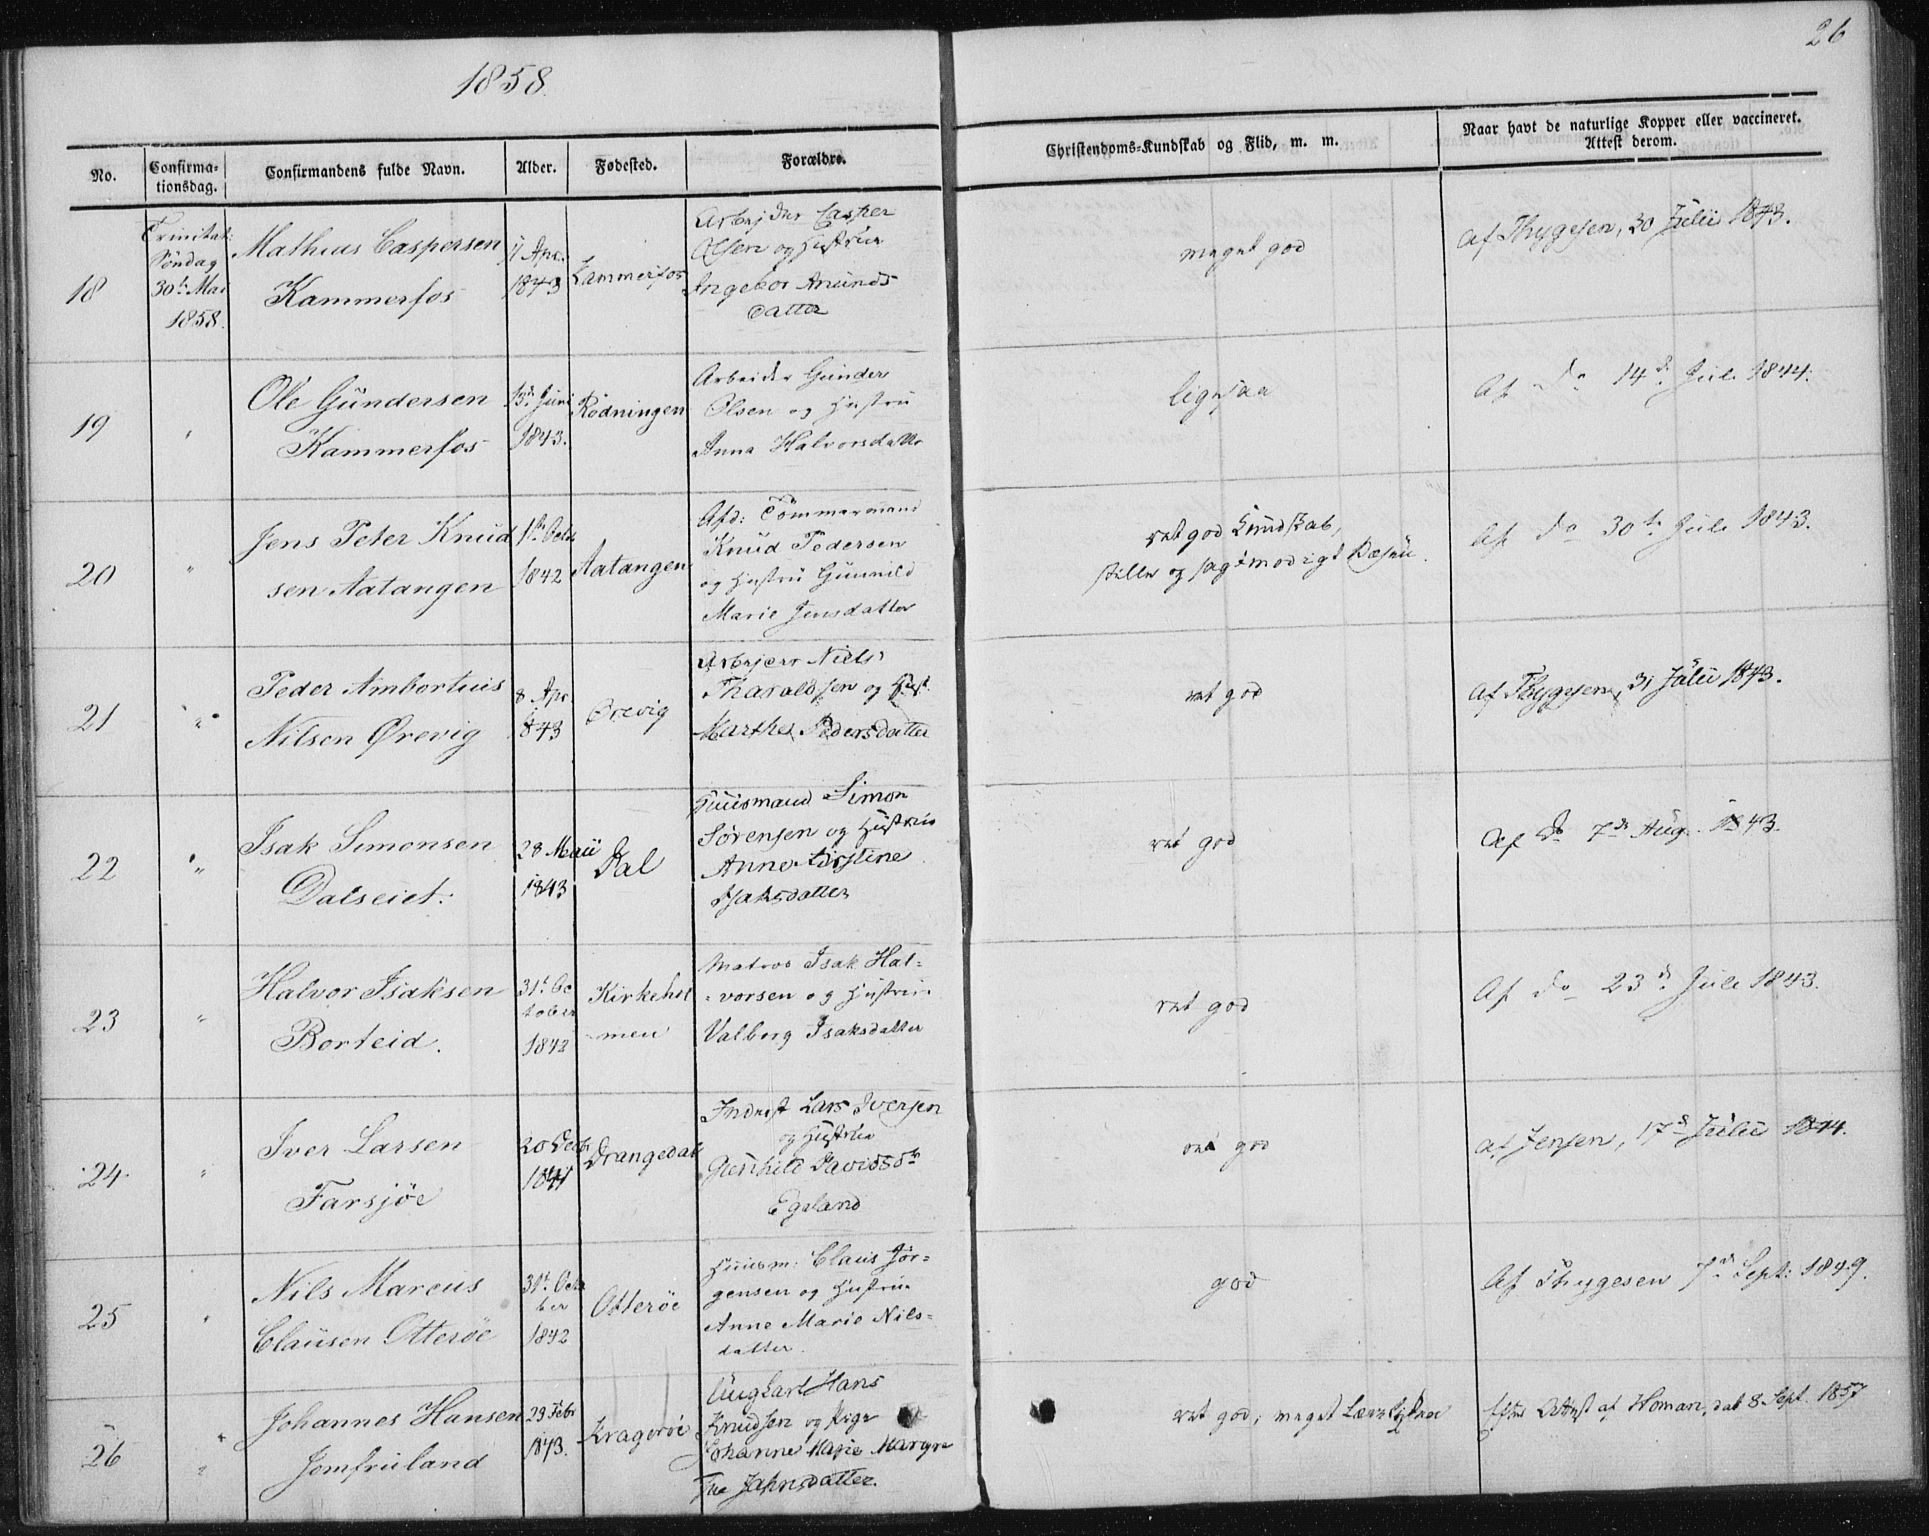 1858.
26
No.
Confirma-
tionsdag.
Confirmandens fulde Navn.
Alder.
Fødested.
Forældre.
Christendoms-Kundskab og Flid, m. m.
Naar havt de naturlige Kopper eller vaccineret.
Attest derom.
18
Trinitat:
Søndag
30te Mai
1858.
Mathias Caspersen
Kammerfos
Apr.
1843
Kammerfos
Arbejder Casper
Olsen og Hustru
Ingebor Anunds
datter
meget god
Af Thygesen, 30 Julii 1843.
19
"
Ole Gundersen
Kammerfos
13de Juni
1843.
Rødningen
Arbeider Gunder
Olsen og Hustru
Anna Halvorsdatter
ligesaa
Af do 14de Juli 1844.
20
"
Jens Peter Knud
sen Aatangen
1ste Octb
1842
Aatangen
Afd: Tømmermand
Knud Pedersen
og Hustru Gunnild
Marie Jensdatter
ret god Kundskab,
stille og sagtmodigt Væsen.
Af do 30te Juli 1843.
21
"
Peder Ambortius
Nilsen Ørevig
8 Apr
1843
Ørevig
Niels
Tharaldsen og Hust.
Marthe Pedersdatter
ret god
Af Thygesen, 31 Julii 1843.
22
"
Isak Simonsen
Dalseiet.
28 Maii
1843
Dal
Huusmand Simon
Sørensen og Hustru
Anne Kirstine
Isaksdatter
ret god
Af do 7de Aug. 1843.
23
"
Halvor Isaksen
Borteid.
31te Oc
tober
1842
Kirkehol
men
Matros Isak Hal-
vorsen og Hustru
Valborg Isaksdatter
ret god
Af do 23de Juli 1843.
24
"
Iver Larsen
Farsjøe
20
1841
Drangedal
Inderst Lars Iversen
og Hustru
Gunhild Davidsdtr
Egeland
ret god
Af Jensen, 17de Julii 1844.
25
"
Nils Marcus
Clausen Otterøe
31te Octo
ber
1842
Otterøe
Huusm: Claus Jør-
gensen og Hustru
Anne Marie Nils-
datter.
god
Af Thygesen 7de Sept: 1849.
26
"
Johannes Hansen
Jomfruland
Febr
1843.
Kragerøe
Ungkarl Hans
Knudsen og Pige
Johanne Marie Margre
the Jahnsdatter.
ret god; meget
Efter Attest af Homan, dat 8 Sept. 1857